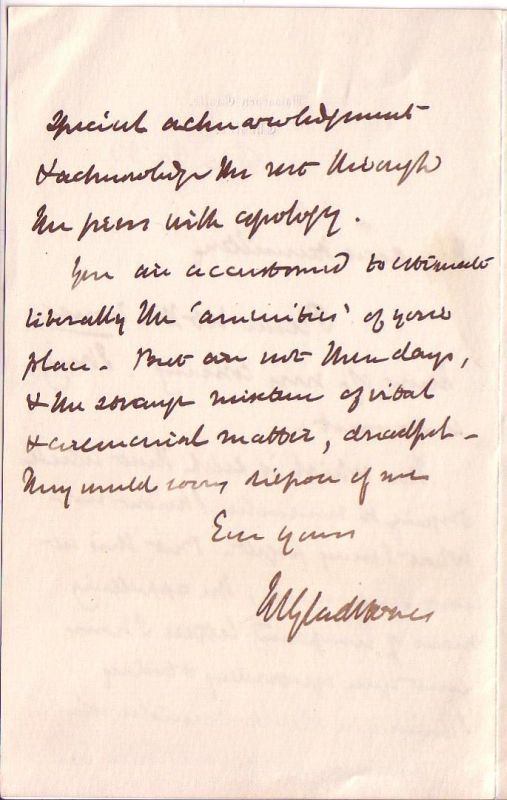 special acknowledgment
& acknowledge the rest through
the press with apology.
You are accustomed to estimate
liberally the 'amenities' of your
place. But are not these days,
& the strange mixture of vital
& ceremonial matter, dreadful -
They would soon dispose of me
Ever yours
WEGladstone